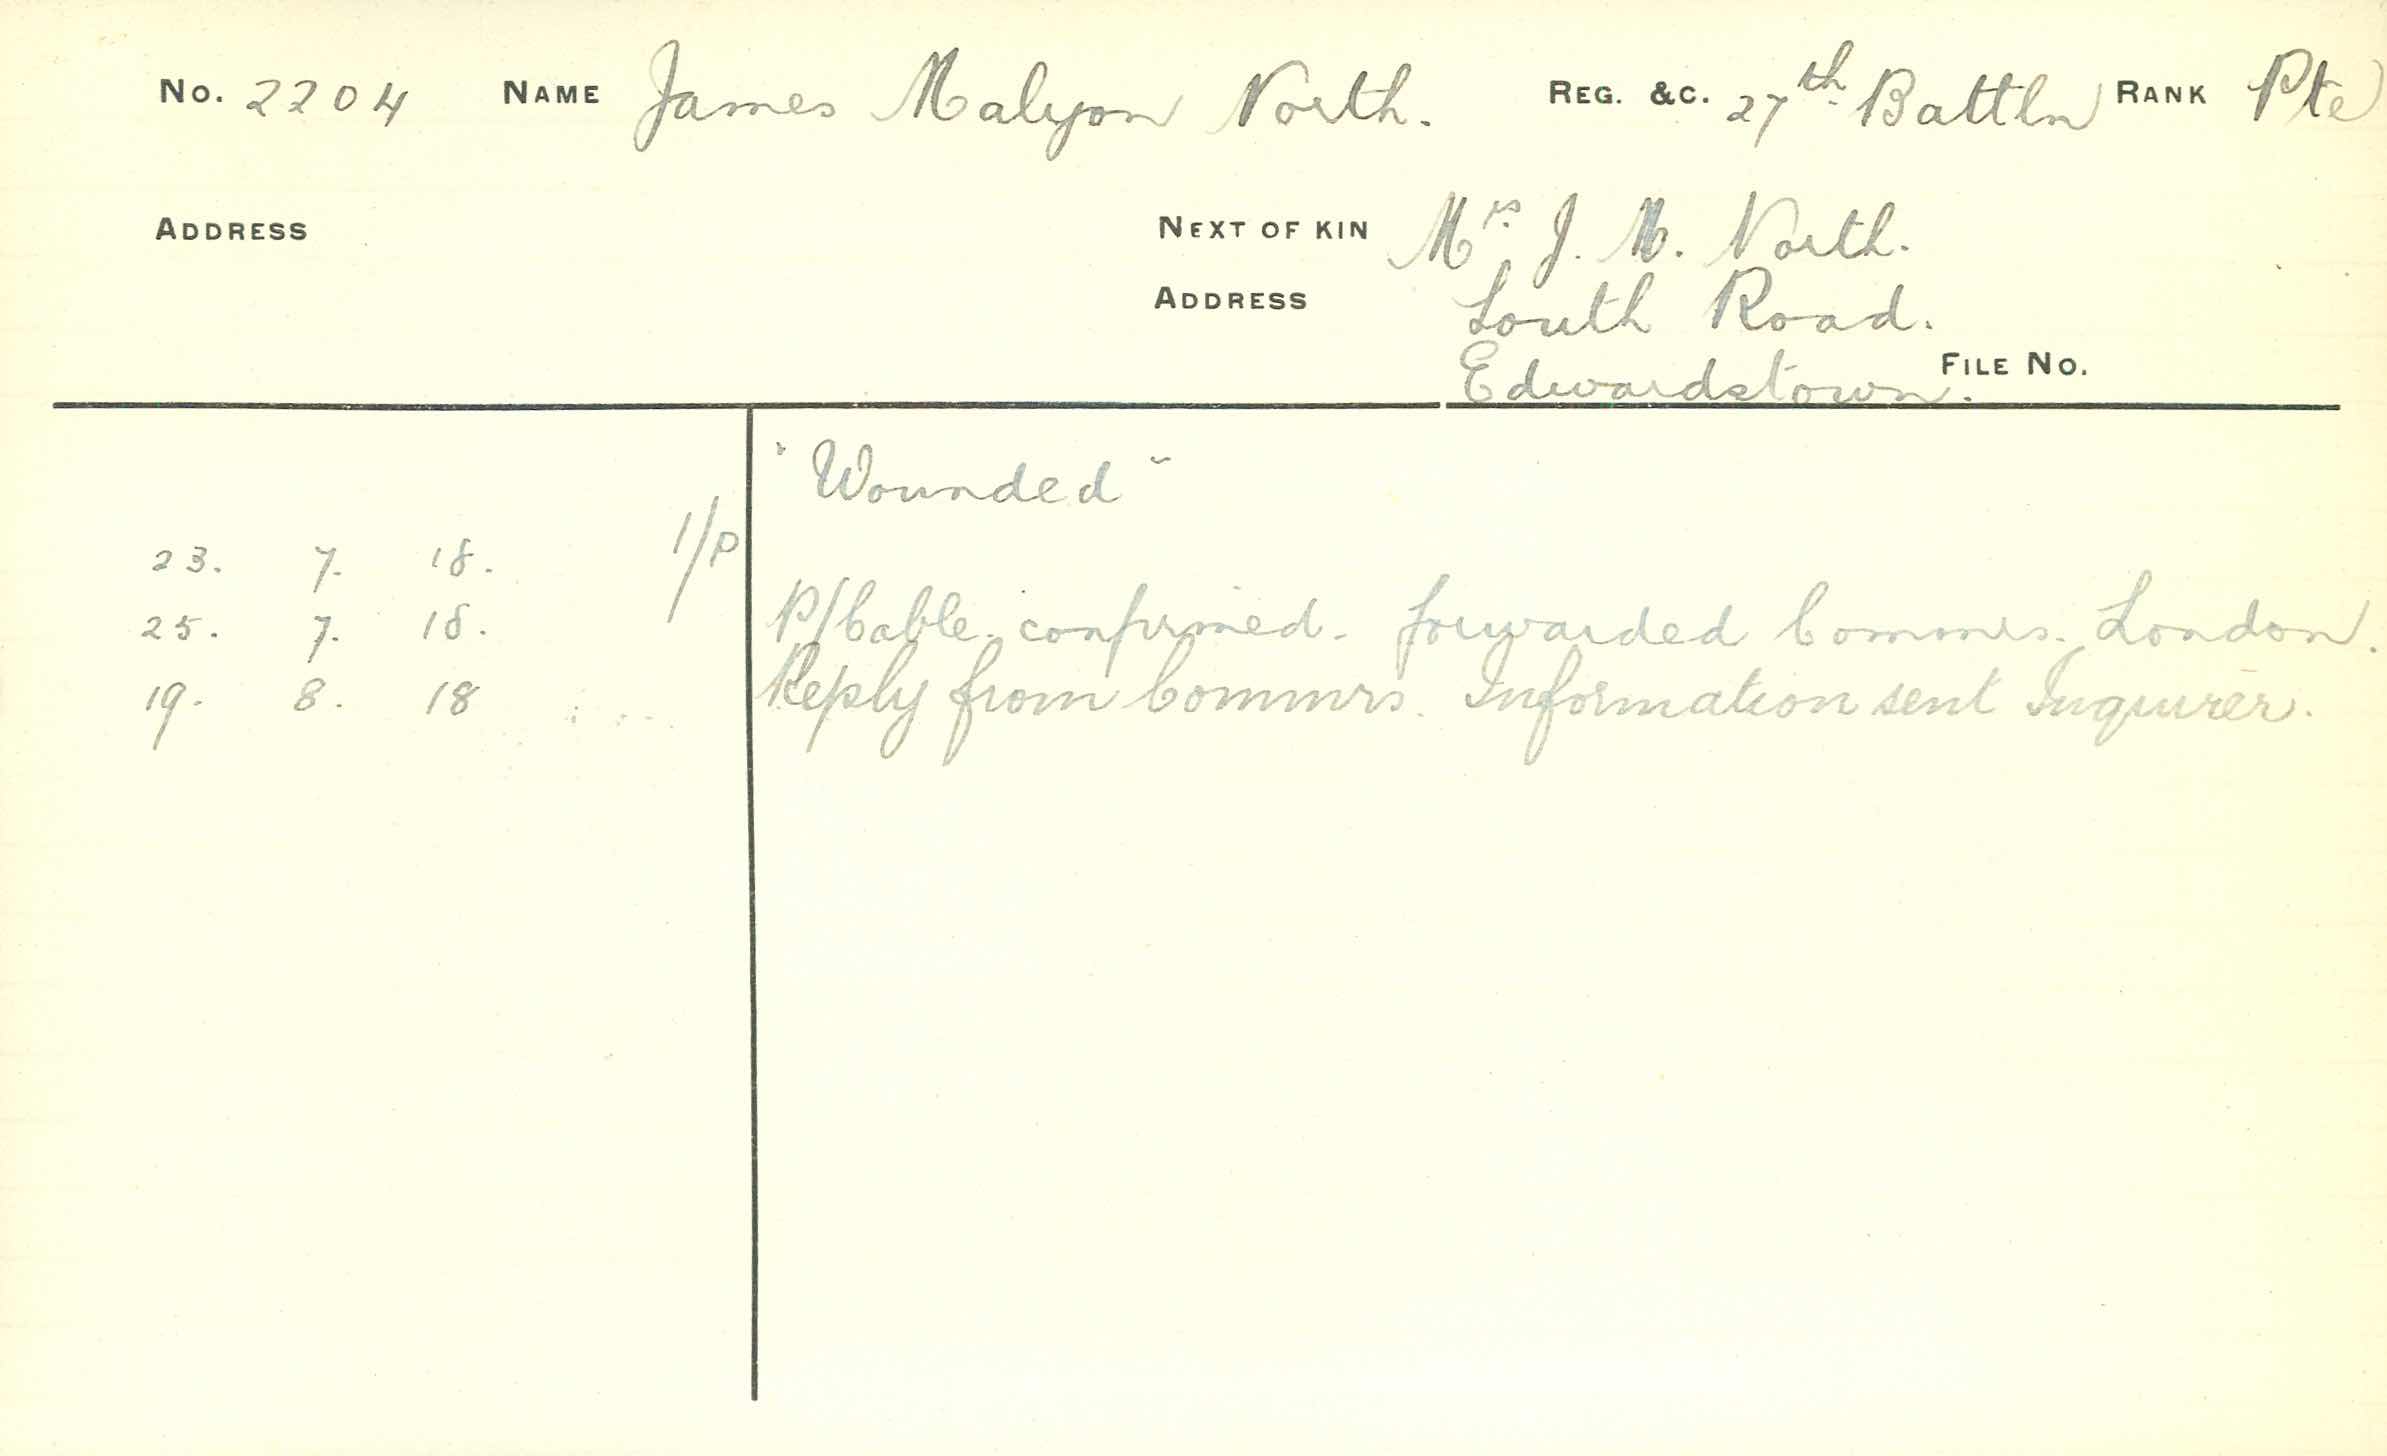 No. 2204 NAME James Malyon North. REG. &C. 27th Battln RANK Pte
ADDRESS NEXT OF KIN Mrs. J. M. North.
ADDRESS South Road.
Edwardstown. FILE No.
"Wounded"
23. 7. 18. 1/P
25. 7. 18. P/Cable. confirmed. forwarded Commrs. London.
19. 8. 18 Reply from Commrs. Information sent Inquirer.